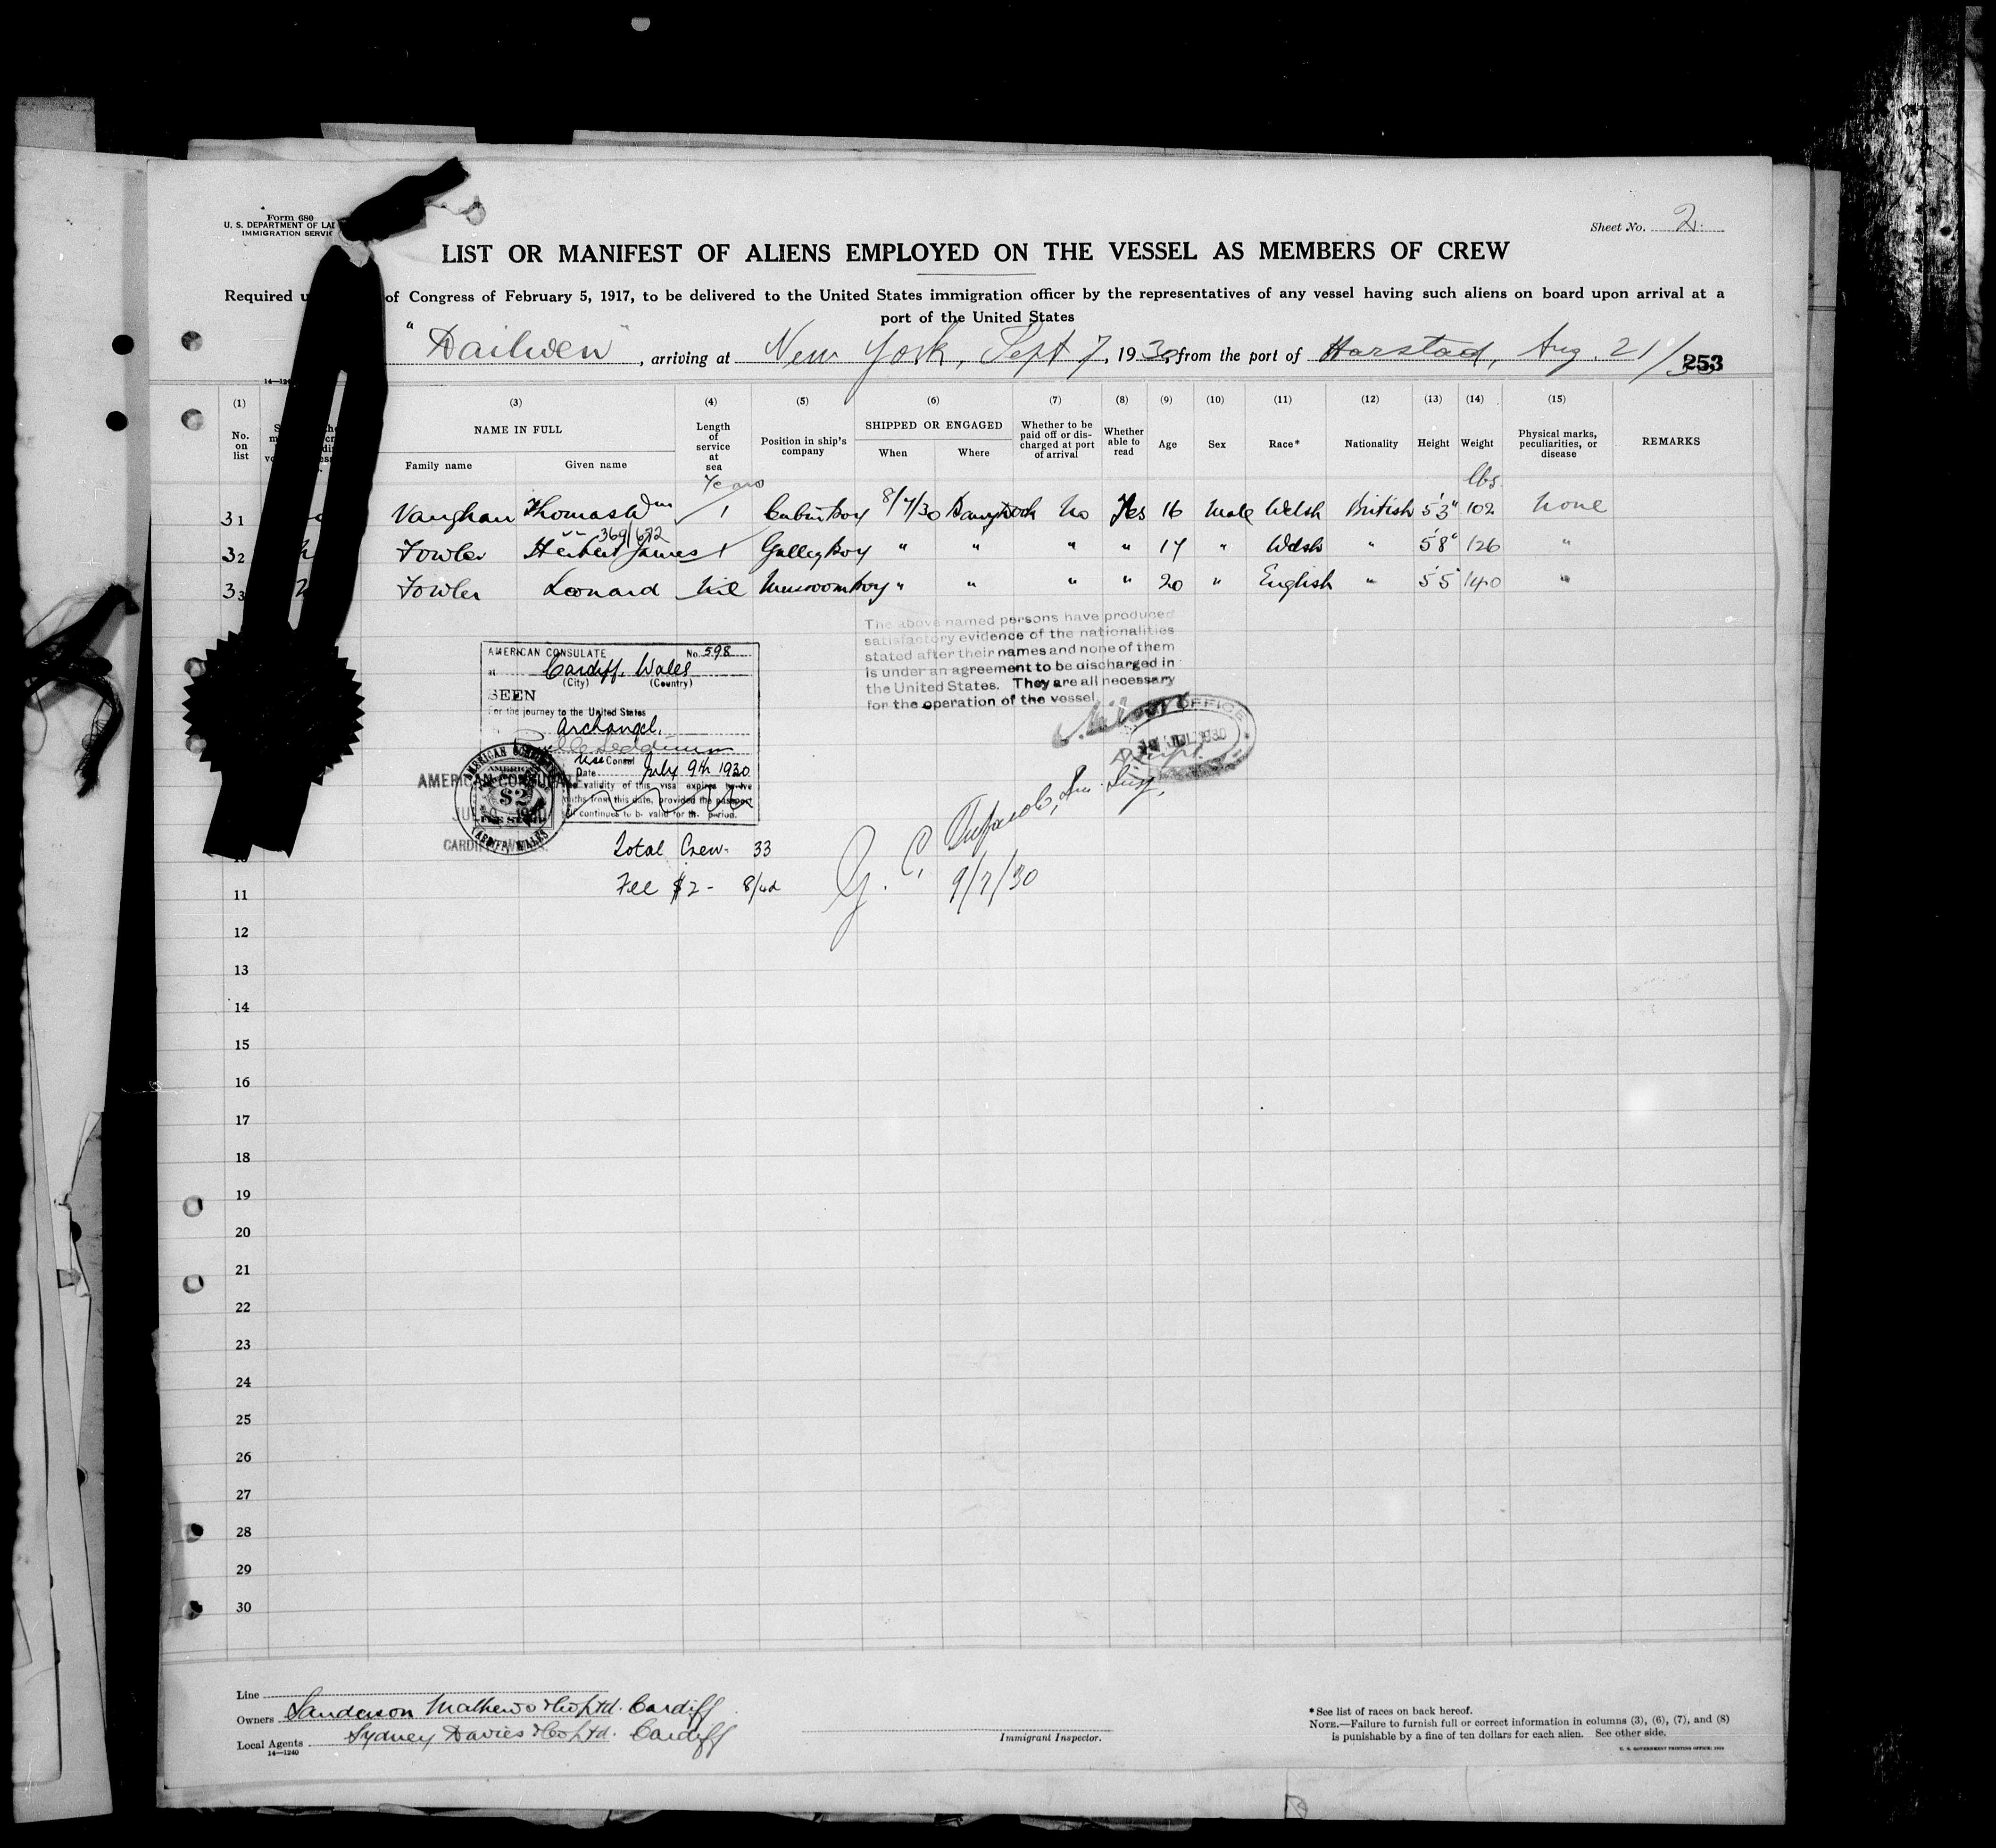 Form 680
U. S. DEPARTMENT OF LA
IMMIGRATION SERVIC
Sheet No. 2.
LIST OR MANIFEST OF ALIENS EMPLOYED ON THE VESSEL AS MEMBERS OF CREW
Required u of Congress of February 5, 1917, to be delivered to the United States immigration officer by the representatives of any vessel having such aliens on board upon arrival at a
port of the United States
"Dailwen", arriving at New York, Sept 7, 1930, from the port of Harstad, Aug. 21/30
253
(1) (3) (4) (5) (6) (7) (8) (9) (10) (11) (12) (13) (14) (15)
No. on list
NAME IN FULL
Family name Given name
Length of service at sea
Years
Position in ship's company
SHIPPED OR ENGAGED
When Where
Whether to be paid off or discharged at port of arrival
Whether able to read
Age Sex Race* Nationality Height Weight
lbs.
Physical marks, peculiarities, or disease
REMARKS
31 Vaughan Thomas Wm 1 Cabin Boy 8/7/30 No Yes 16 Male Welsh British 5'3" 102 None
369/672
32 Fowler Herbert James 1 Galley Boy " " " " 17 " Welsh " 5'8" 126 "
33 Fowler Leonard Nil Messroom Boy " " " " 20 " English " 5'5 140 "
The above named persons have produced
satisfactory evidence of the nationalities
stated after their names and none of them
is under an agreement to be discharged in
the United States. They are all necessary
for the operation of the vessel.
AMERICAN CONSULATE No. 598
at Cardiff, Wales
(City) (Country)
SEEN
For the journey to the United States
Archangel.
Vice Consul
Date July 9th 1930
validity of this visa expires twelve
months from this date, provided the passport
continues to be valid for the period.
AMERICAN CONSULATE
CARDIFF, WALES.
$2
OFFICE
Total Crew - 33
Fee $2 - 8/4d
9/7/30
11
12
13
14
15
16
17
18
19
20
21
22
23
24
25
26
27
28
29
30
Line
Owners Sanderson Mathews & Co Ltd. Cardiff
Local Agents Sydney Davies & Co Ltd. Cardiff
14—1240
Immigrant Inspector.
*See list of races on back hereof.
NOTE.—Failure to furnish full or correct information in columns (3), (6), (7), and (8)
is punishable by a fine of ten dollars for each alien. See other side.